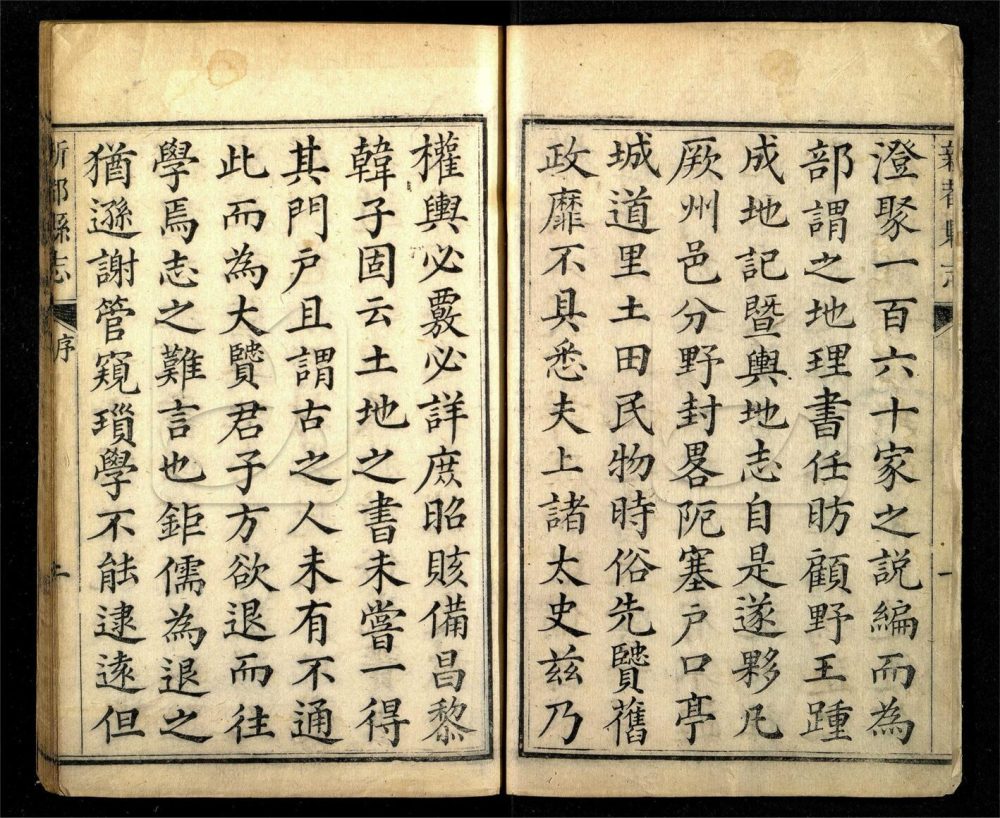 新都縣志
一
澄聚一百六十家之説編而為
部謂之地理書任昉顧野王踵
成地記暨輿地志自是遂夥凡
厥州邑分野封畧阨塞户口亭
城道里土田民物時俗先贒舊
政靡不具悉夫上諸太史兹乃
權輿必覈必詳庶昭賅備昌黎
韓子固云土地之書未嘗一得
其門户且謂古之人未有不通
此而為大贒君子方欲退而往
學焉志之難言也鉅儒為退之
猶遜謝管窺瑣學不能逮遠但
新都縣志
序